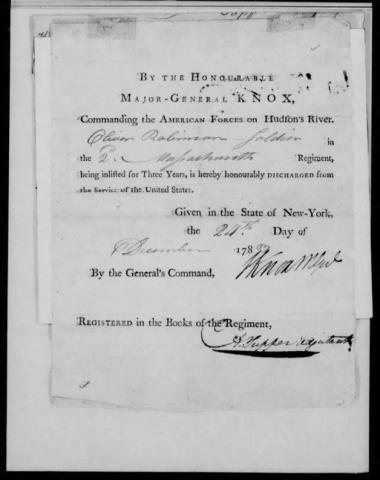 BY THE HONOURABLE
MAJOR-GENERAL KNOX,
Commanding the AMERICAN FORCES on HUDSON'S RIVER.
Oliver Robinson Soldier in
the 2d. Massachusetts Regiment,
being inlisted for Three Years, is hereby honourably DISCHARGED from
the Service of the United States.
GIVEN in the State of NEW-YORK,
the 24th Day of
December 1783
HKnox MGenl
By the General's Command,
REGISTERED in the Books of the Regiment,
A. Tupper Adjutant